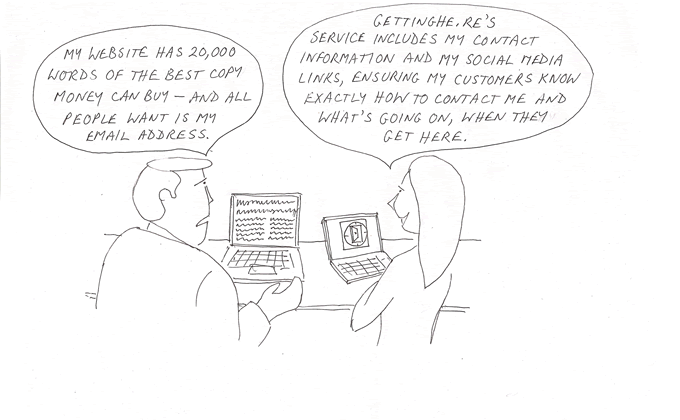 MY WEBSITE HAS 20,000
WORDS OF THE BEST COPY
MONEY CAN BUY – AND ALL
PEOPLE WANT IS MY
EMAIL ADDRESS.
GETTINGHE.RE'S
SERVICE INCLUDES MY CONTACT
INFORMATION AND MY SOCIAL MEDIA
LINKS, ENSURING MY CUSTOMERS KNOW
EXACTLY HOW TO CONTACT ME AND
WHAT'S GOING ON, WHEN THEY
GET HERE.